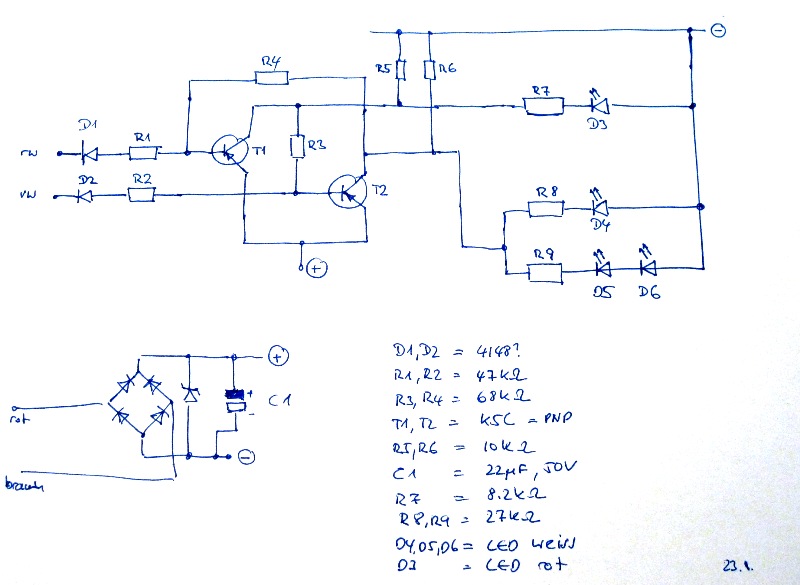 R4
R5
R6
⊖
R7
D3
D1
R1
T1
R3
rw
D2
R2
T2
vw
R8
D4
R9
D5
D6
⊕
⊕
+
C1
-
rot
⊖
braun
D1,D2 = 4148?
R1,R2 = 47kΩ
R3,R4 = 68kΩ
T1,T2 = K5C = PNP
R5,R6 = 10kΩ
C1 = 22µF, 50V
R7 = 8.2kΩ
R8,R9 = 27kΩ
D4,D5,D6 = LED weiss
D3 = LED rot
23.1.